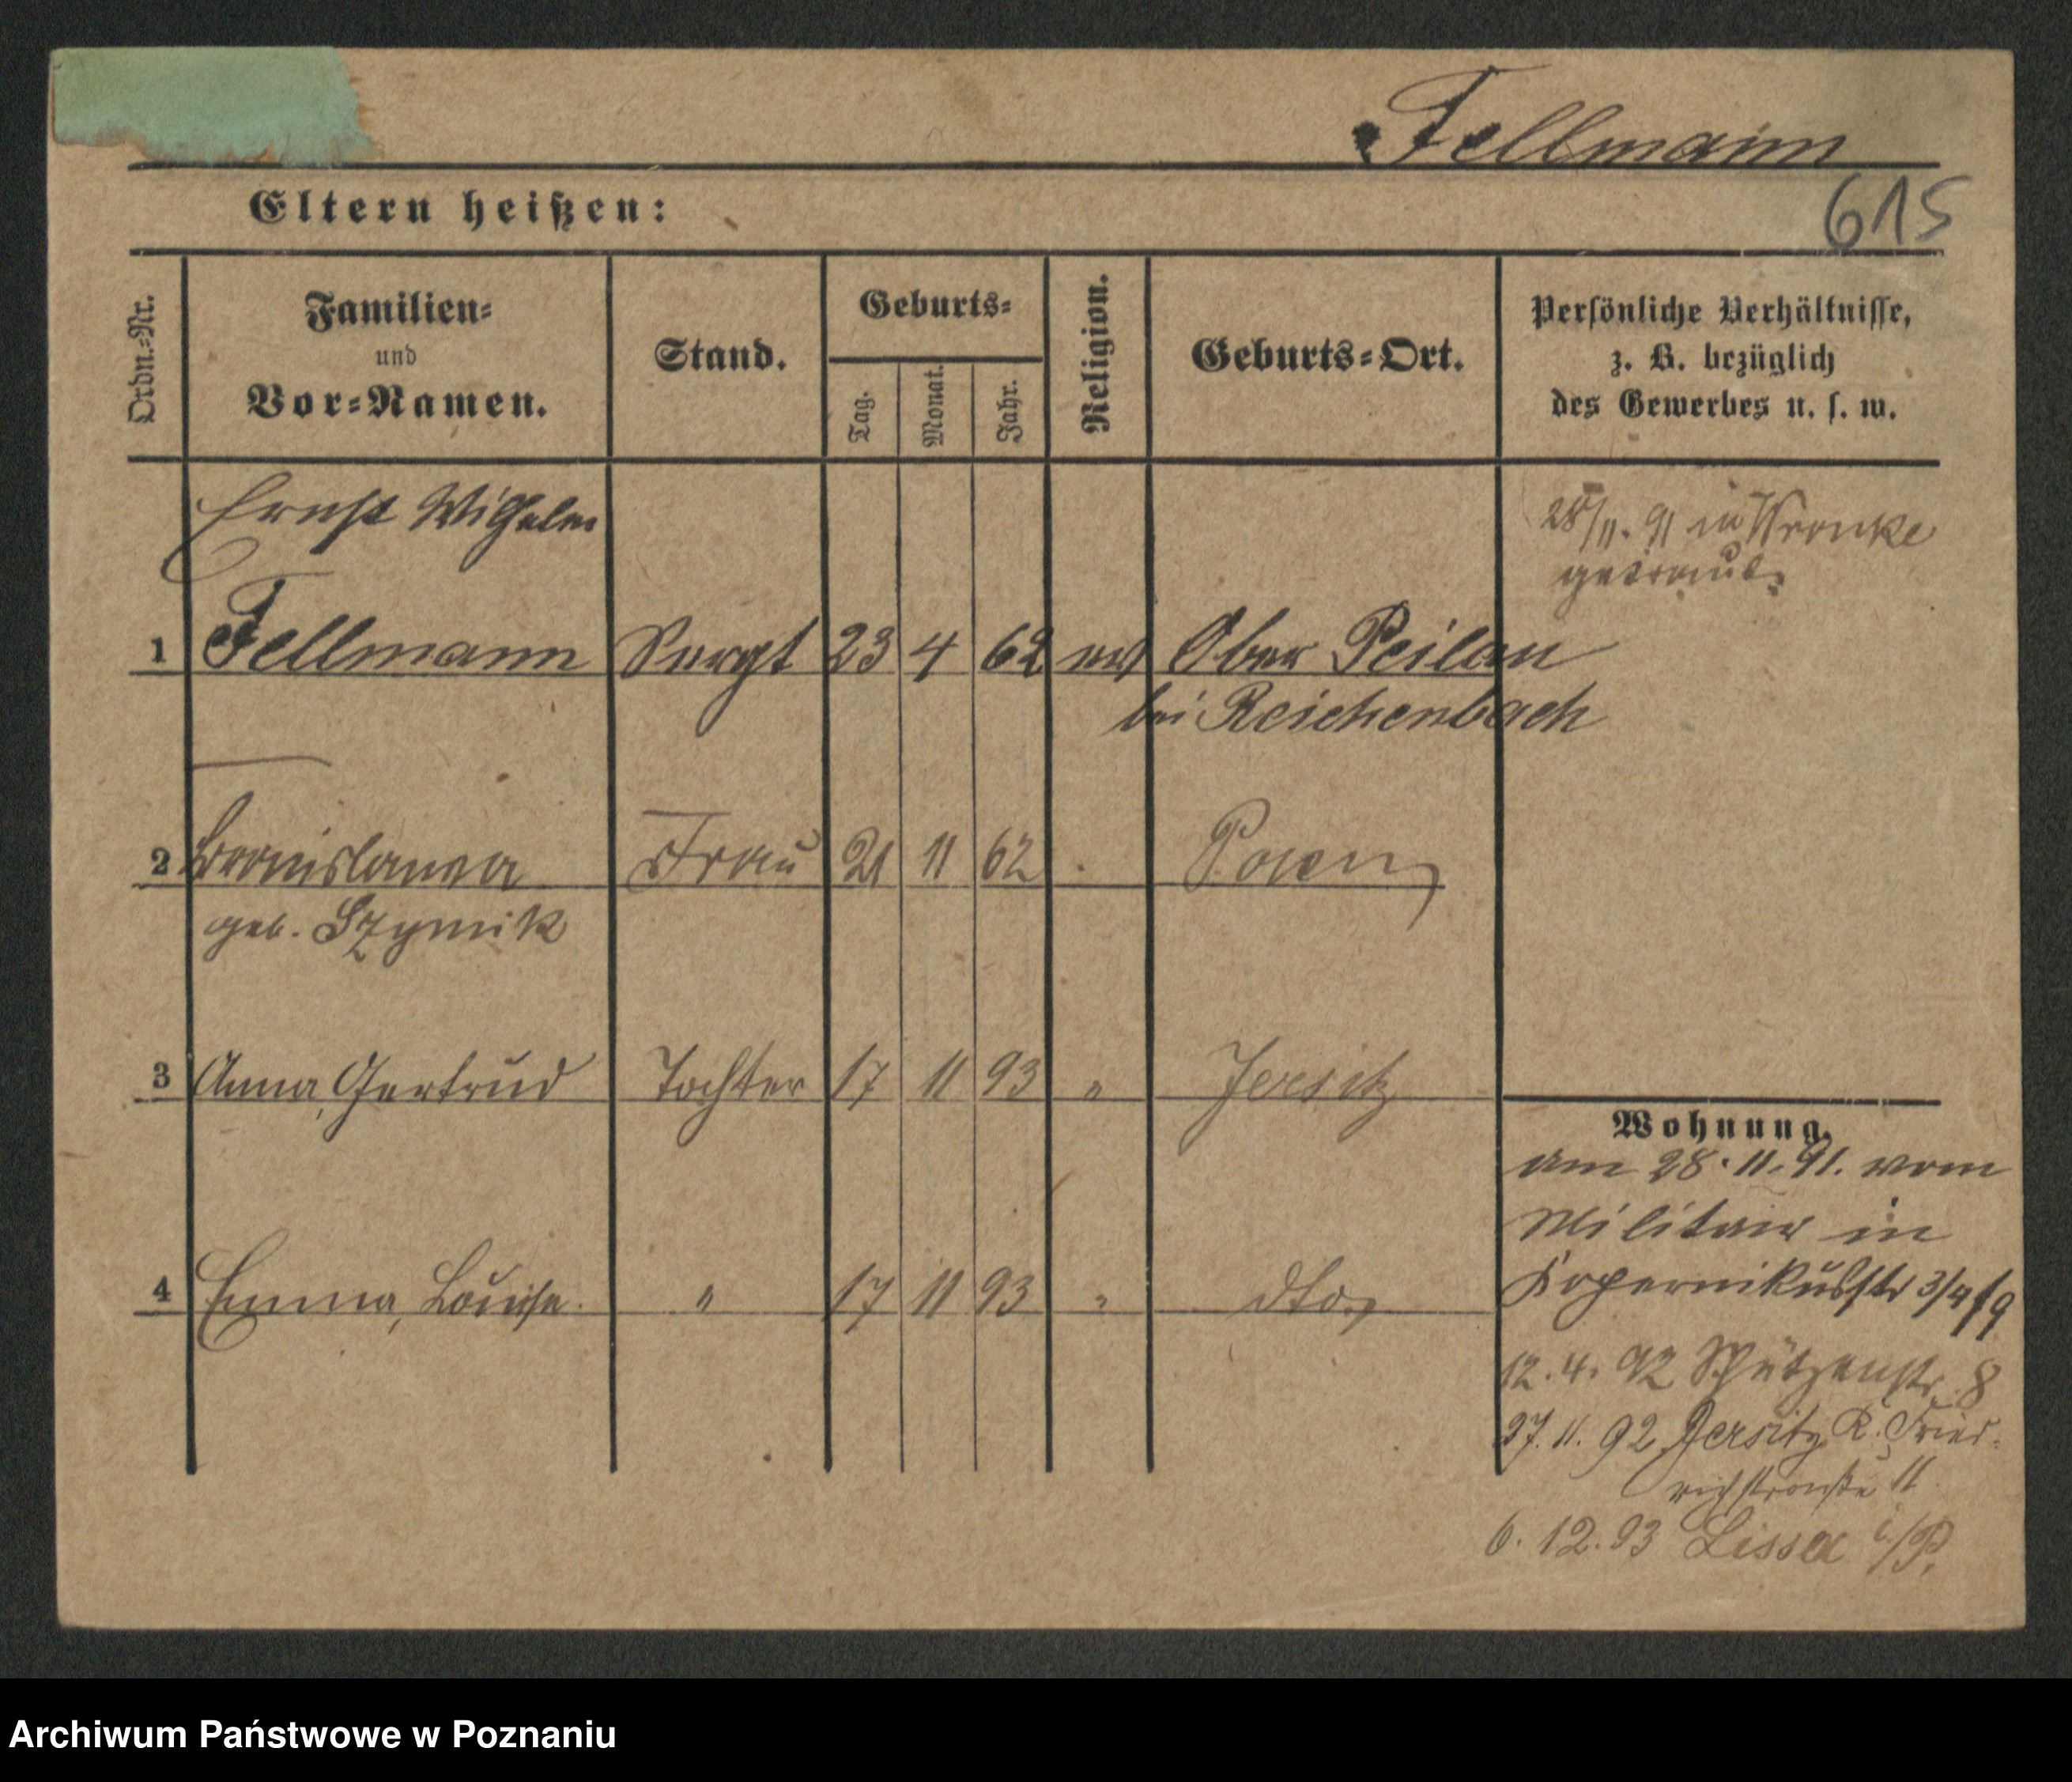 Fellmann
615
Eltern heißen:
Ordn.-Nr.
Familien-
und
Vor-Namen.
Stand.
Geburts-
Tag.
Monat.
Jahr.
Religion.
Geburts-Ort.
Persönliche Verhältnisse,
z. B. bezüglich
des Gewerbes u. s. w.
Ernst Wilhelm
28/11. 91 in Wronke
getraut.
1 Fellmann Sergt 23 4 62 ev Ober Peilau
bei Reichenbach
2 Bronislawa Frau 21 11 62 Posen
geb. Szymik
3 Anna, Gertrud Tochter 17 11 93 " Jersitz
4 Emma, Louise. " 17 11 93 " dto
Wohnung.
am 28.11.91. vom
Militair in
Kopernikusstr 3/4 f 9
12.4.92 Schützenstr. 8
27.11.92 Jersitz K. Fried-
richstraße 11
6.12.93 Lissa i/P.
Archiwum Państwowe w Poznaniu